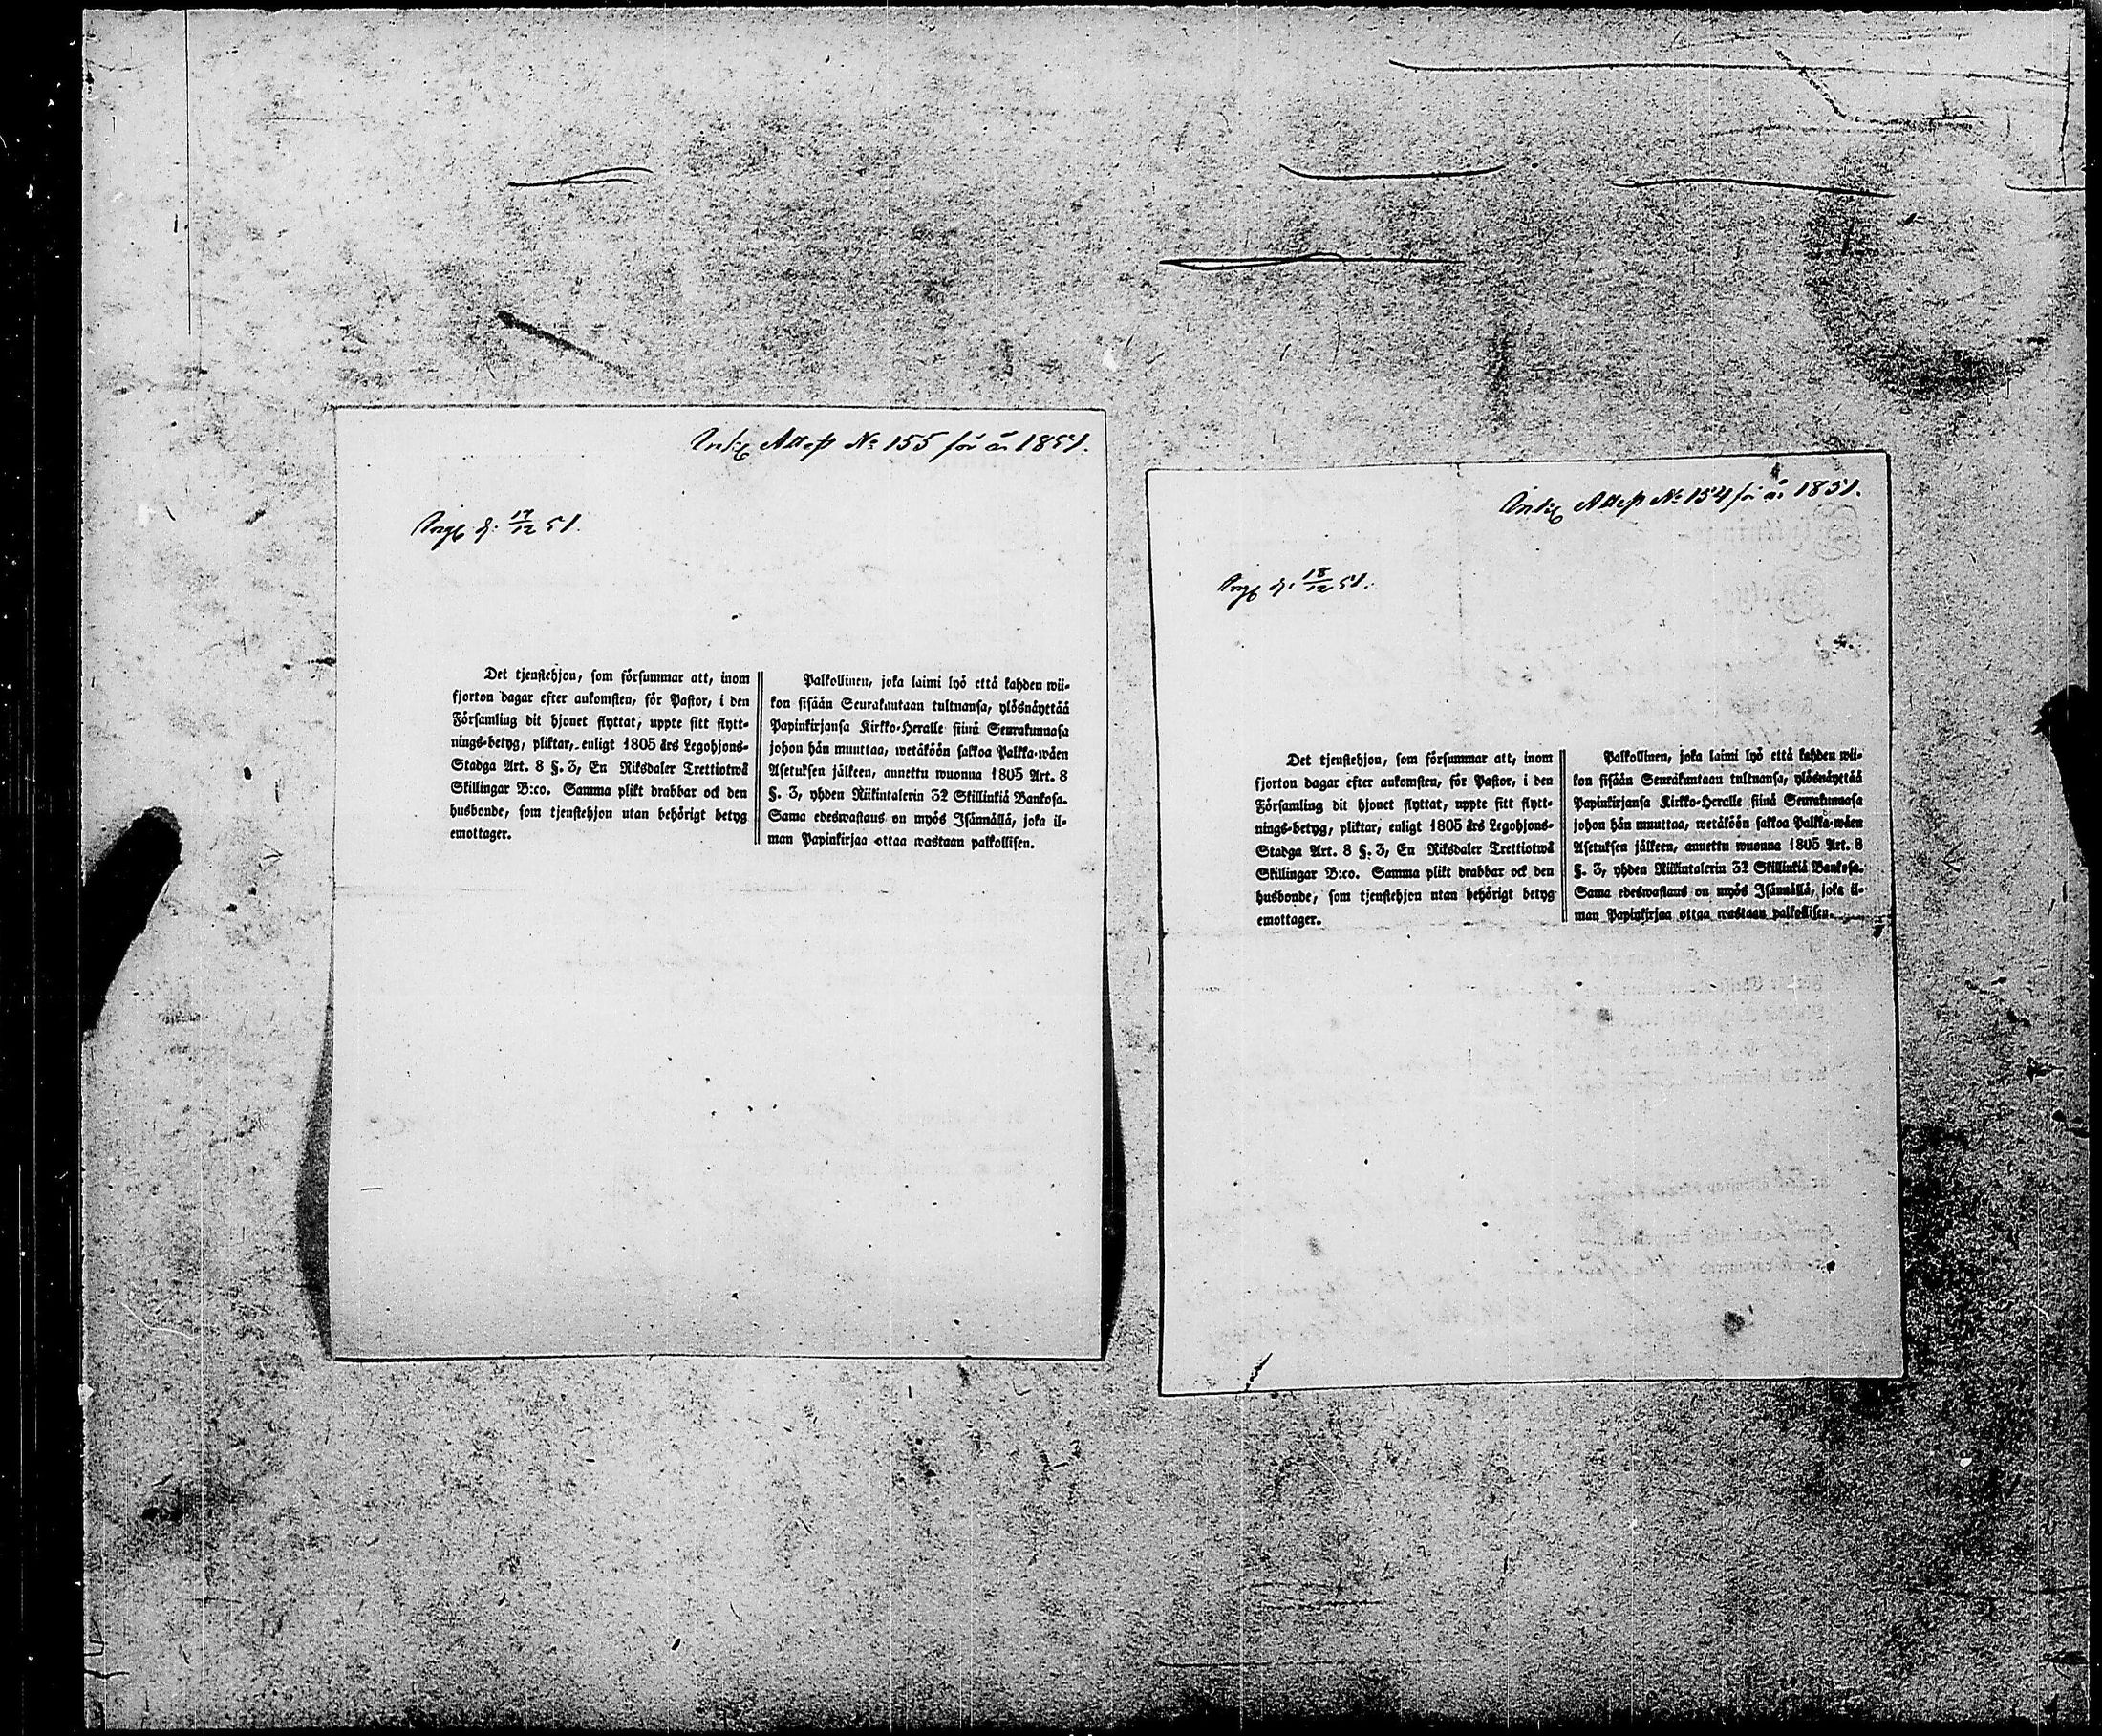 Attest No 155 för år 1851.
d: 17/12 51.
Det tjenstehjon, som försummar att, inom
fjorton dagar efter ankomsten, för Pastor, i den
Församling dit hjonet flyttat, uppte sitt flytt-
nings-betyg, pliktar, enligt 1805 års Legohjons-
Stadga Art. 8 §. 3, En Riksdaler Trettiotwå
Skillingar B:co. Samma plikt drabbar ock den
husbonde, som tjenstehjon utan behörigt betyg
emottager.
Palkollinen, joka laimi lyö että kahden wii-
kon sisään Seurakuntaan tultuansa, ylösnäyttää
Papinkirjansa Kirkko-Heralle siinä Seurakunnasa
johon hän muuttaa, wetäköön sakkoa Palkka-wäen
Asetuksen jälkeen, annettu wuonna 1805 Art. 8
§. 3, yhden Riikintalerin 32 Skillinkiä Bankosa.
Sama edeswastaus on myös Isännällä, joka il-
man Papinkirjaa ottaa wastaan palkollisen.
Attest No 154 för år 1851.
d. 18/12 51.
Det tjenstehjon, som försummar att, inom
fjorton dagar efter ankomsten, för Pastor, i den
Församling dit hjonet flyttat, uppte sitt flytt-
nings-betyg, pliktar, enligt 1805 års Legohjons-
Stadga Art. 8 §. 3, En Riksdaler Trettiotwå
Skillingar B:co. Samma plikt drabbar ock den
husbonde, som tjenstehjon utan behörigt betyg
emottager.
Palkollinen, joka laimi lyö että kahden wii-
kon sisään Seurakuntaan tultuansa, ylösnäyttää
Papinkirjansa Kirkko-Heralle siinä Seurakunnasa
johon hän muuttaa, wetäköön sakkoa Palkka-wäen
Asetuksen jälkeen, annettu wuonna 1805 Art. 8
§. 3, yhden Riikintalerin 32 Skillinkiä Bankosa.
Sama edeswastaus on myös Isännällä, joka il-
man Papinkirjaa ottaa wastaan palkollisen.